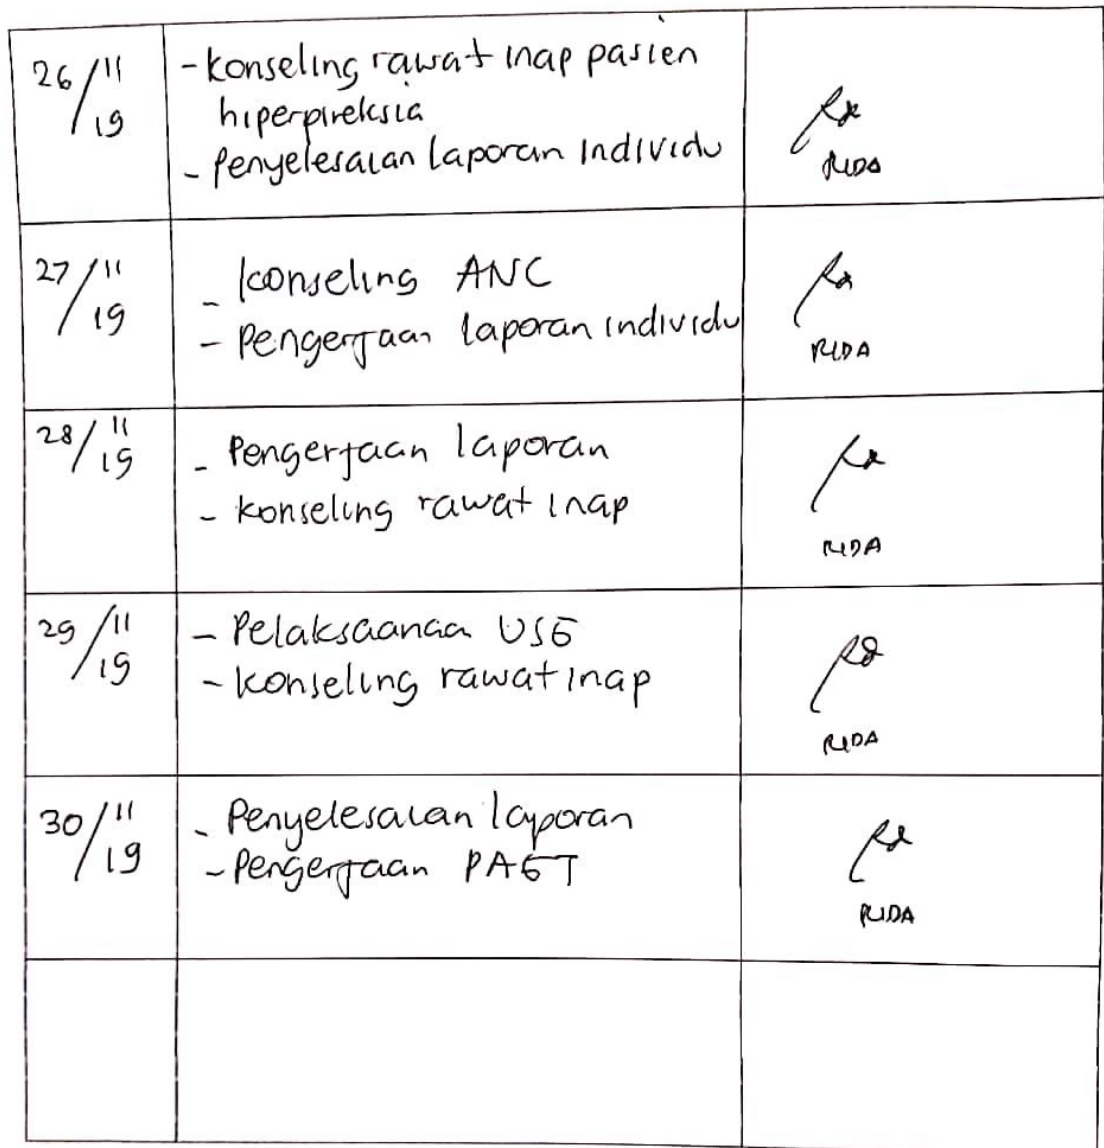 26/11/19
- Konseling rawat inap pasien
hiperpireksia
- Penyelesaian laporan Individu
RIDA
27/11/19
- Konseling ANC
- Pengerjaan laporan individu
RIDA
28/11/19
- Pengerjaan laporan
- Konseling rawat inap
RIDA
29/11/19
- Pelaksaanaa USG
- Konseling rawat inap
RIDA
30/11/19
- Penyelesaian laporan
- Pengerjaan PAGT
RIDA